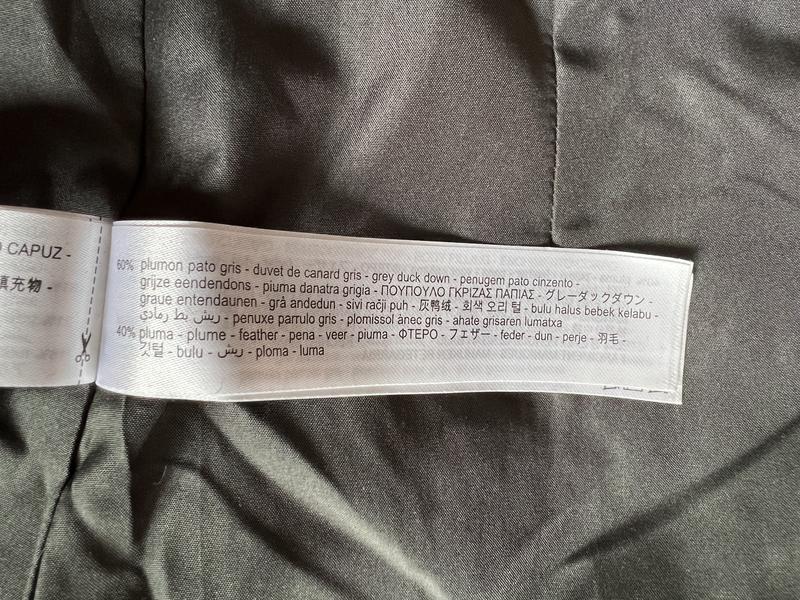 O CAPUZ -
填充物 -
60% plumon pato gris - duvet de canard gris - grey duck down - penugem pato cinzento -
grijze eendendons - piuma danatra grigia - ΠΟΥΠΟΥΛΟ ΓΚΡΙΖΑΣ ΠΑΠΙΑΣ - グレーダックダウン -
graue entendaunen - grå andedun - sivi račji puh - 灰鸭绒 - 회색 오리 털 - bulu halus bebek kelabu -
ريش بط رمادي - penuxe parrulo gris - plomissol ànec gris - ahate grisaren lumatxa
40% pluma - plume - feather - pena - veer - piuma - ΦΤΕΡΟ - フェザー - feder - dun - perje - 羽毛 -
깃털 - bulu - ريش - ploma - luma